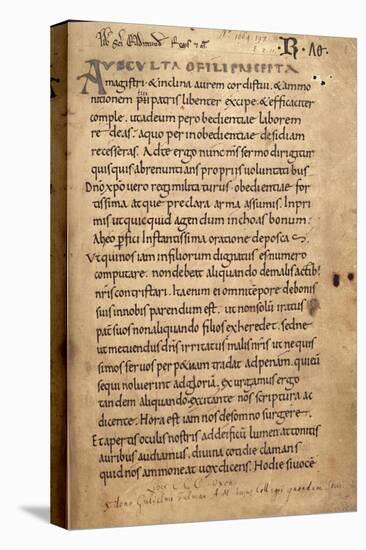 Lib' Sci Edmundi Regis &
B. λο
AUSCULTA O FILI PRECEPTA
magistri· & inclina aurem cordis tui· & ammo
nitionem pii patris libenter excipe· & efficaciter
comple· ut ad eum per obedientiae laborem
redeas· a quo per inobedientiae desidiam
recesseras. Ad te ergo nunc ms sermo dirigitur
quisquis abrenuntians propriis voluntatibus
Dno xpo vero regi militaturus obedientiae for
tissima atque preclara arma assumis. Inpri
mis ut quicquid agendum inchoas bonum·
ab eo pfici Instantissima oratione deposcas·
Ut qui nos iam in filiorum dignatus est numero
computare· non debeat aliquando de malis actib;
nris contristari. Ita enim ei omni tempore de bonis
suis in nobis parendum est· ut non solum iratus
pat suos non aliquando filios exheredet· sed ne
ut metuendus dns irritatus malis nris ut nequis
simos servos perpetuam tradat ad penam· qui eum
sequi noluerint ad gloriam. Exurgamus ergo
tandem aliquando· excitante nos scriptura ac
dicente· Hora est iam nos de somno surgere·
Et apertis oculis nostris ad deificum lumen· attonitis
auribus audiamus· divina cotidie clamans
quid nos ammoneat vox dicens· Hodie si vocē
Liber C C C Oxon
ex dono Gulielmi Fulman A. M. hujus Collegii quondam Socii